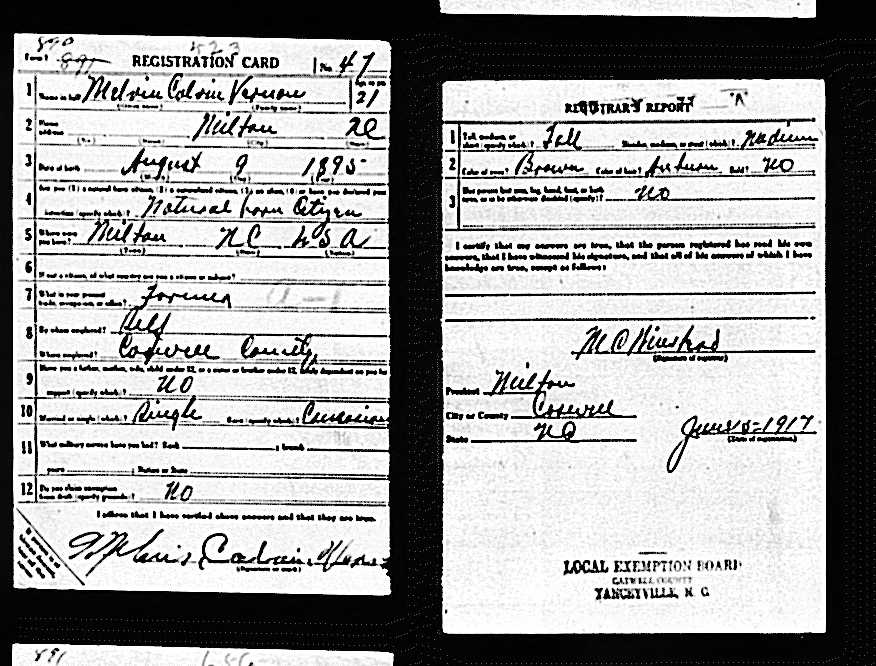 890 423
Form 1 895 REGISTRATION CARD No. 47
1 Name in full Melvin Calvin Vernon Age, in yrs 21
(Given name) (Family name)
2 Home address Milton NC
(No.) (Street) (City) (State)
3 Date of birth August 9 1895
(Month) (Day) (Year)
4 Are you (1) a natural born citizen, (2) a naturalized citizen, (3) an alien, (4) or have you declared your
intention (specify which)? Natural born Citizen
5 Where were you born? Milton NC USA
(Town) (State) (Nation)
6 If not a citizen, of what country are you a citizen or subject?
7 What is your present trade, occupation, or office? Farmer
8 By whom employed? Self
Where employed? Caswell County
9 Have you a father, mother, wife, child under 12, or a sister or brother under 12, solely dependent on you for
support (specify which)? NO
10 Married or single (which)? Single Race (specify which)? Caucasian
11 What military service have you had? Rank ; branch
years ; Nation or State
12 Do you claim exemption from draft (specify grounds)? NO
I affirm that I have verified above answers and that they are true.
Melvin Calvin Vernon
(Signature or mark)
891
REGISTRAR'S REPORT
1 Tall, medium, or short (specify which)? Tall Slender, medium, or stout (which)? Medium
2 Color of eyes? Brown Color of hair? Auburn Bald? NO
3 Has person lost arm, leg, hand, foot, or both
eyes, or is he otherwise disabled (specify)? NO
I certify that my answers are true, that the person registered has read his own
answers, that I have witnessed his signature, and that all of his answers of which I have
knowledge are true, except as follows:
M. C. Winstead
(Signature of registrar)
Precinct Milton
City or County Caswell
State NC June 5-1917
(Date of registration)
LOCAL EXEMPTION BOARD
CASWELL COUNTY
YANCEYVILLE, N. C.